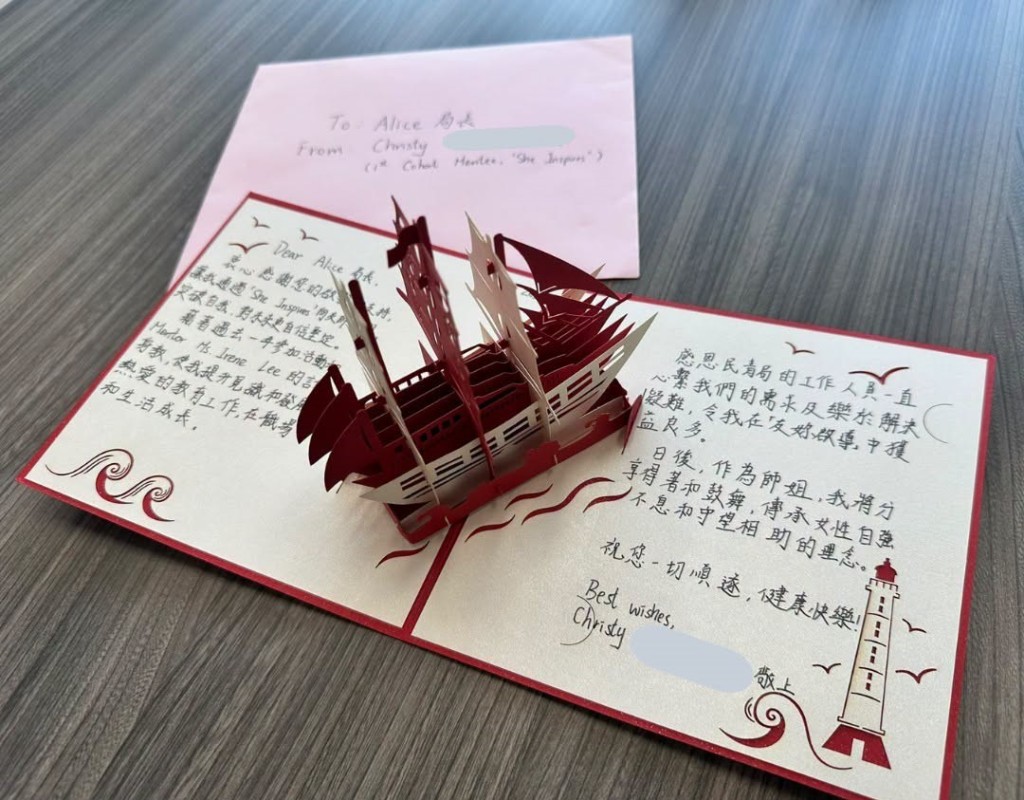 To Alice 局長
From Christy
(1st Cohort Mentee, 'She Inspires')
Dear Alice 局長,
衷心感謝您的
讓我透過'She Inspires'
突破自我,對未來更自信堅定。
藉着過去一年參加活動
Mentor Ms. Irene Lee 的
對教,使我提升見識和
熱愛的教育工作,在職場
和生活成長。
感恩民青局的工作人員一直
心繫我們的需求及樂於解決
疑難,令我在友妳啟導中獲
益良多。
日後,作為師姐,我將分
享得著和鼓舞,傳承女性自強
不息和守望相助的理念。
祝您一切順遂,健康快樂!
Best wishes,
Christy
敬上